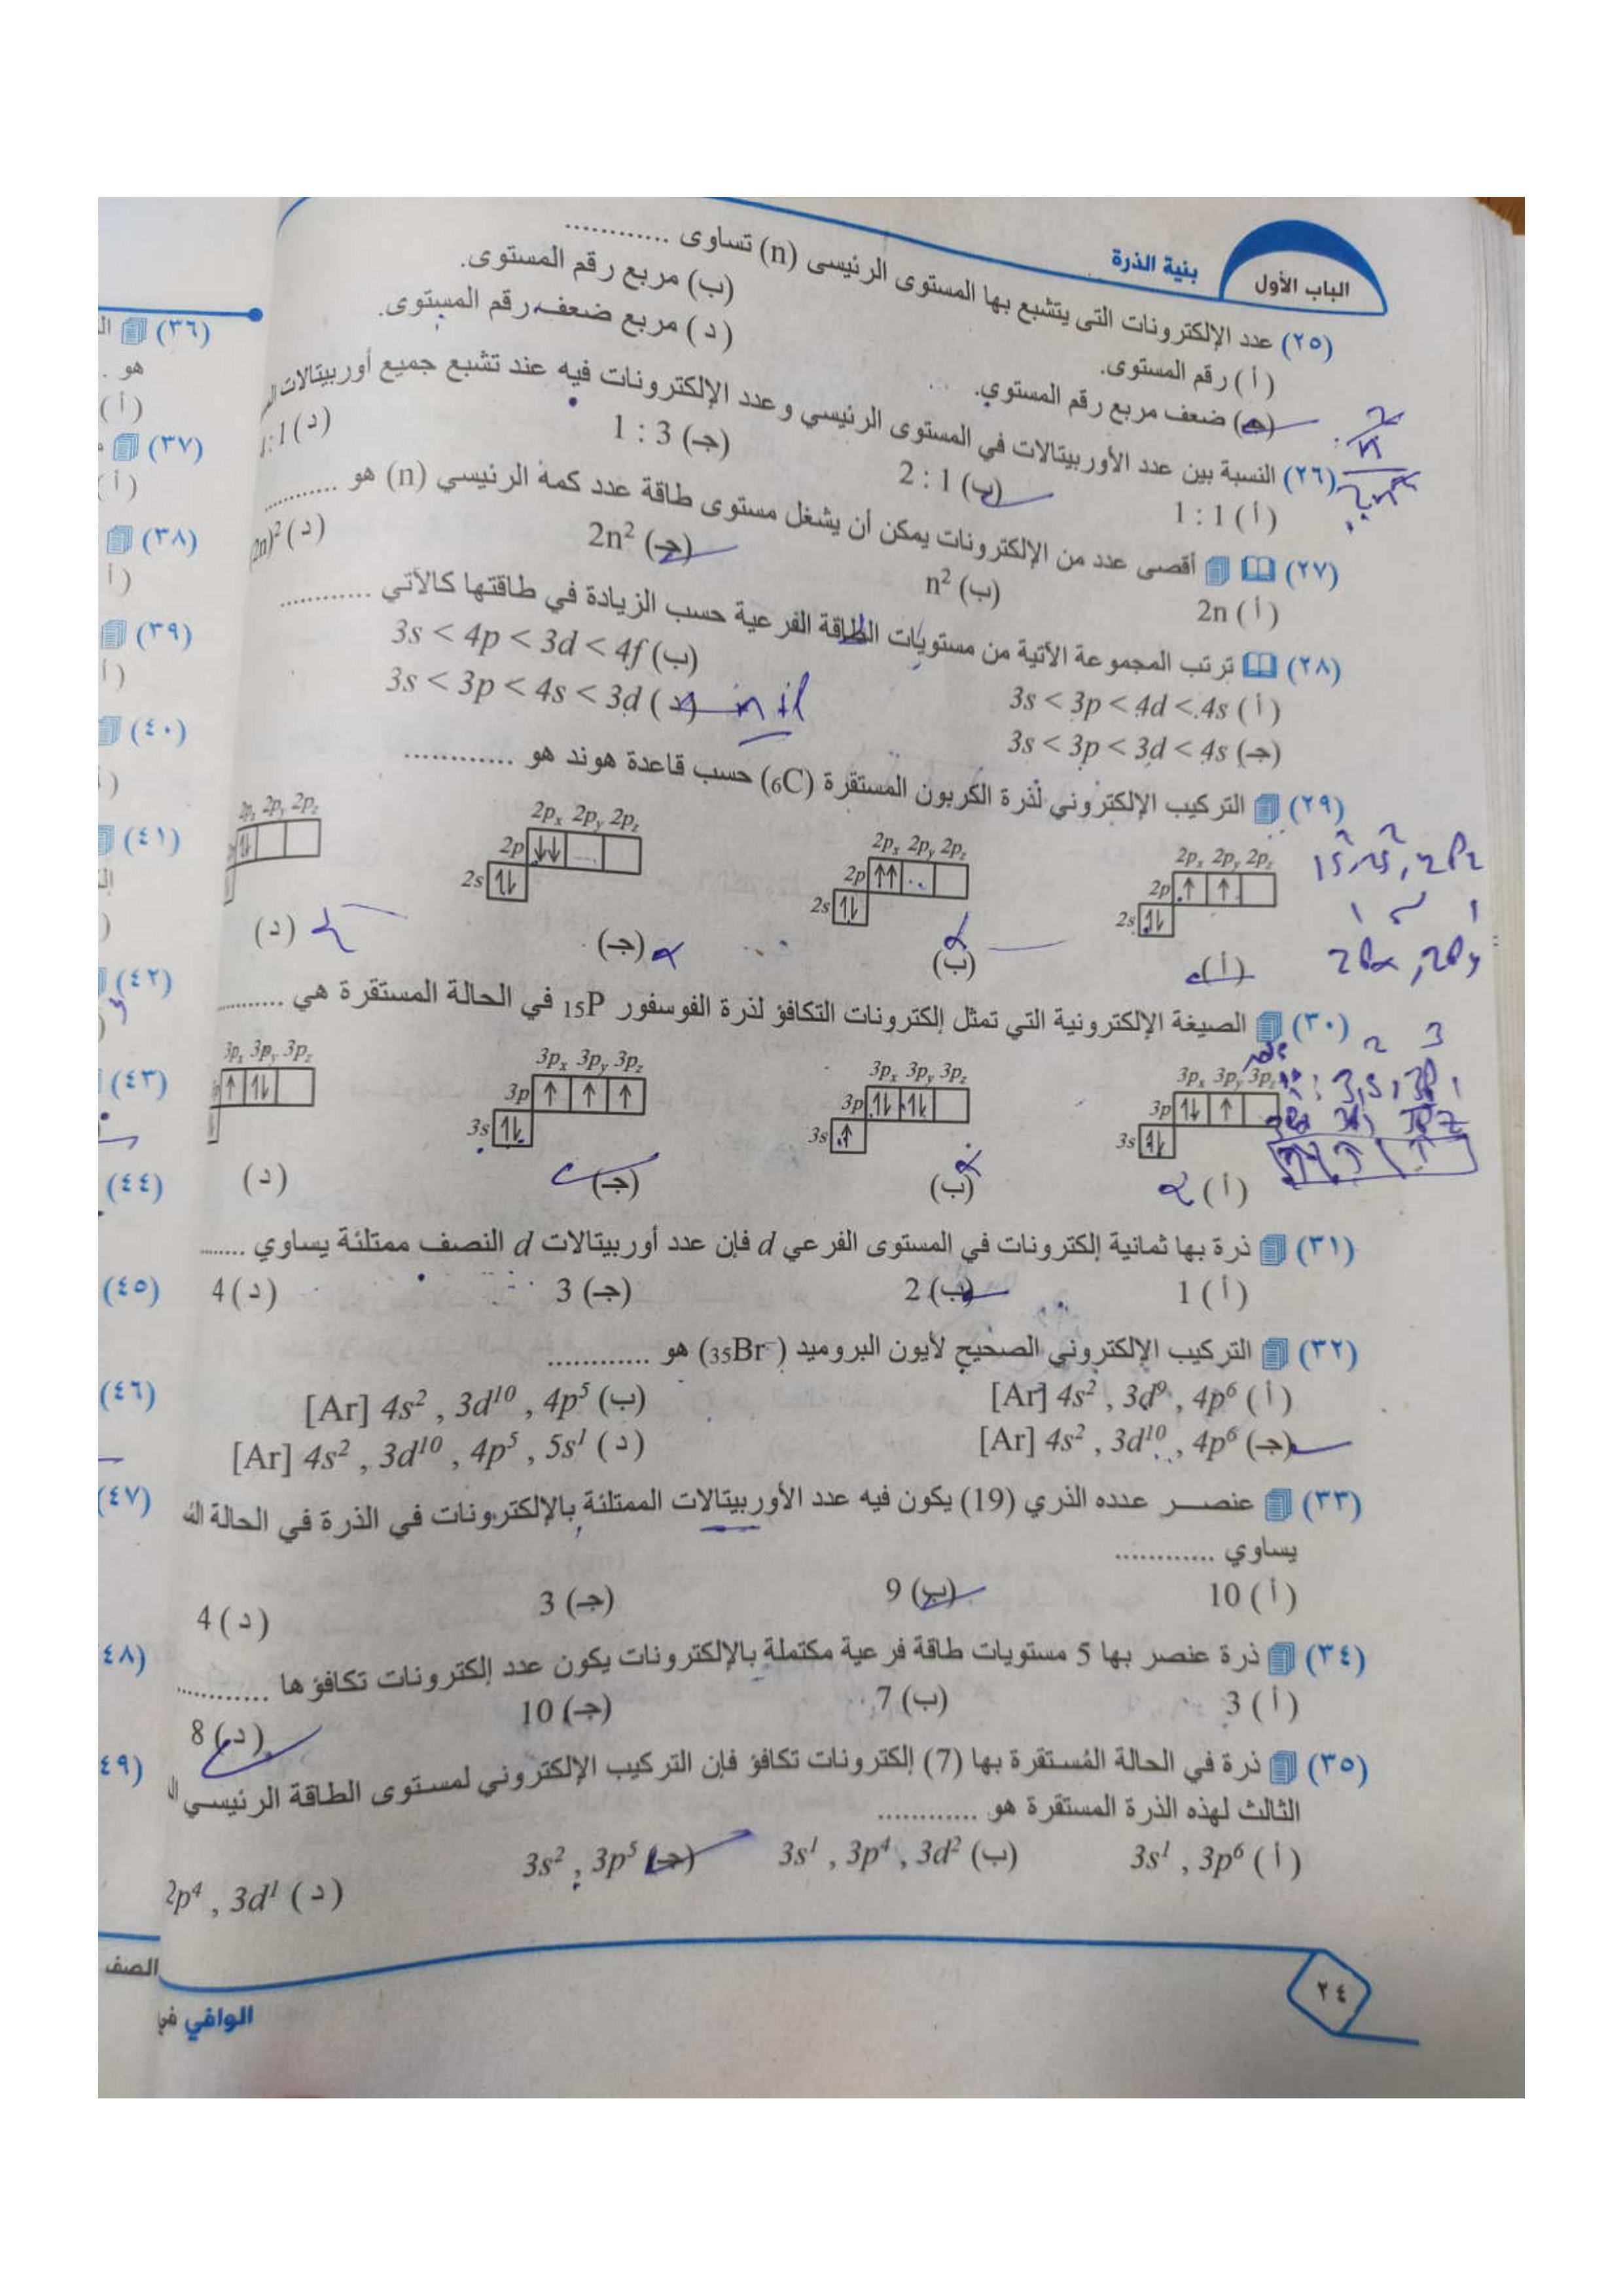 الباب الأول
بنية الذرة
(٢٥) عدد الإلكترونات التى يتشبع بها المستوى الرئيسى (n) تساوى ............
(أ) رقم المستوى.
(ب) مربع رقم المستوى.
(جـ) ضعف مربع رقم المستوي.
(د) مربع ضعف رقم المستوى.
(٢٦) النسبة بين عدد الأوربيتالات في المستوى الرئيسي وعدد الإلكترونات فيه عند تشبع جميع أوربيتالات
(أ) 1 : 1
(ب) 2 : 1
(جـ) 1 : 3
(د) :1
(٢٧) أقصى عدد من الإلكترونات يمكن أن يشغل مستوى طاقة عدد كمه الرئيسي (n) هو ............
(أ) 2n
(ب) n²
(جـ) 2n²
(د) (2n)²
(٢٨) ترتب المجموعة الآتية من مستويات الطاقة الفرعية حسب الزيادة في طاقتها كالآتي ............
(أ) 3s < 3p < 4d < 4s
(ب) 3s < 4p < 3d < 4f
(جـ) 3s < 3p < 3d < 4s
(د) 3s < 3p < 4s < 3d
n + l
(٢٩) التركيب الإلكتروني لذرة الكربون المستقرة (₆C) حسب قاعدة هوند هو ............
2pₓ 2pᵧ 2p_z
2p ↑ ↑
2s ↑↓
(أ)
2pₓ 2pᵧ 2p_z
2p ↑↑
2s ↑↓
(ب)
2pₓ 2pᵧ 2p_z
2p ↓↓
2s ↑↓
(جـ)
2pₓ 2pᵧ 2p_z
↑↓
(د)
(٣٠) الصيغة الإلكترونية التي تمثل إلكترونات التكافؤ لذرة الفوسفور ₁₅P في الحالة المستقرة هي ............
3pₓ 3pᵧ 3p_z
3p ↑↓ ↑
3s ↑↓
(أ)
3pₓ 3pᵧ 3p_z
3p ↑↓ ↑↓
3s ↑
(ب)
3pₓ 3pᵧ 3p_z
3p ↑ ↑ ↑
3s ↑↓
(جـ)
3pₓ 3pᵧ 3p_z
↑ ↑↓
(د)
(٣١) ذرة بها ثمانية إلكترونات في المستوى الفرعي d فإن عدد أوربيتالات d النصف ممتلئة يساوي ........
(أ) 1
(ب) 2
(جـ) 3
(د) 4
(٣٢) التركيب الإلكتروني الصحيح لأيون البروميد (₃₅Br⁻) هو ............
(أ) [Ar] 4s² , 3d⁹ , 4p⁶
(ب) [Ar] 4s² , 3d¹⁰ , 4p⁵
(جـ) [Ar] 4s² , 3d¹⁰ , 4p⁶
(د) [Ar] 4s² , 3d¹⁰ , 4p⁵ , 5s¹
(٣٣) عنصر عدده الذري (19) يكون فيه عدد الأوربيتالات الممتلئة بالإلكترونات في الذرة في الحالة
يساوي ............
(أ) 10
(ب) 9
(جـ) 3
(د) 4
(٣٤) ذرة عنصر بها 5 مستويات طاقة فرعية مكتملة بالإلكترونات يكون عدد إلكترونات تكافؤها ............
(أ) 3
(ب) 7
(جـ) 10
(د) 8
(٣٥) ذرة في الحالة المُستقرة بها (7) إلكترونات تكافؤ فإن التركيب الإلكتروني لمستوى الطاقة الرئيسي
الثالث لهذه الذرة المستقرة هو ............
(أ) 3s¹ , 3p⁶
(ب) 3s¹ , 3p⁴ , 3d²
(جـ) 3s² , 3p⁵
(د) 2p⁴ , 3d¹
٢٤
(٣٦)
هو .
(أ)
(٣٧)
(أ)
(٣٨)
(أ
(٣٩)
(أ)
(٤٠)
(٤١)
(٤٢)
(٤٣)
(٤٤)
(٤٥)
(٤٦)
(٤٧)
٤٨)
٤٩)
الصف
الوافي في